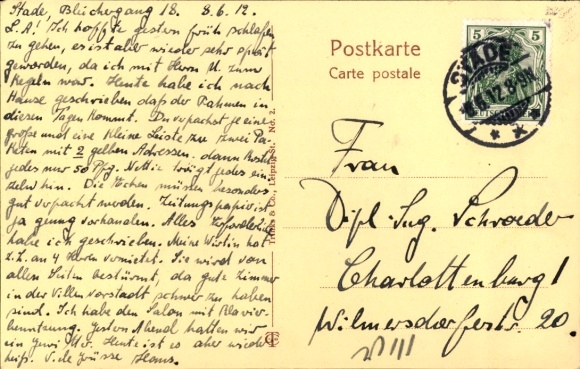 Stade, Bleichergang 18. 8.6.12.
L. A! Ich hoffte gestern früh schlafen
zu gehen, es ist aber wieder sehr spät
geworden, da ich mit Herrn U. zum
Kegeln war. Heute habe ich nach
Hause geschrieben daß der Rahmen in
diesen Tagen kommt. Du verpackst je eine
große und eine kleine Leiste zu zwei Pa-
keten mit 2 gelben Adressen. dann kostet
jedes nur 50 Pfg. Nettie trägt jedes ein-
zeln hin. Die Ecken müssen besonders
gut verpackt werden. Zeitungspapier ist
ja genug vorhanden. Alles Erforderliche
habe ich geschrieben. Meine Wirtin hat
z. Z. an 4 Herren vermietet. Sie wird von
allen Seiten bestürmt, da gute Zimmer
in der Villenvorstadt schwer zu haben
sind. Ich habe den Salon mit Klavier-
benutzung. Gestern Abend hatten wir
ein Gewitter. Heute ist es aber wieder
heiß. Viele Grüsse Hans.
Trinks & Co., Leipzig St. No. 2.
Postkarte
Carte postale
5 5
STADE
8.6.12. 8-9N
Frau
Dipl-Ing. Schroeder
Charlottenburg 1
Wilmersdorferstr. 20.